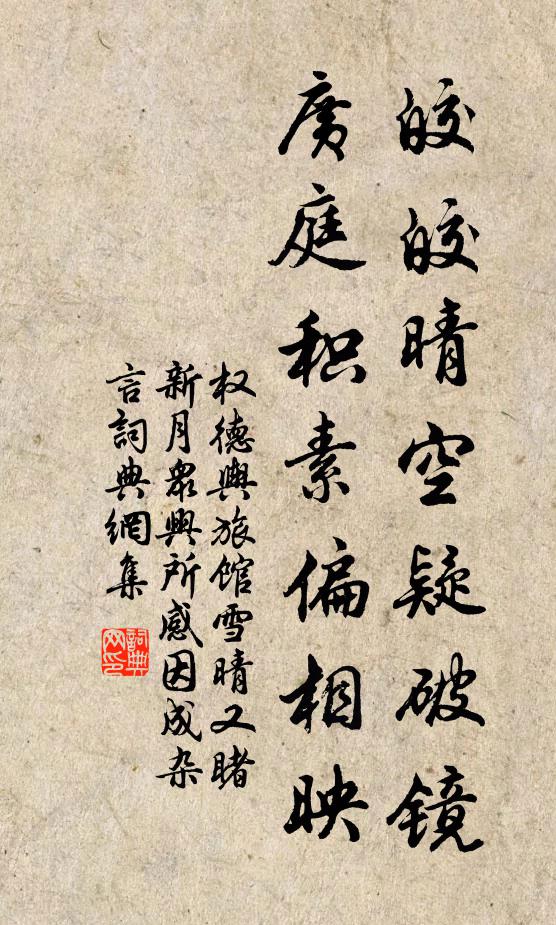 皎皎晴空疑破镜
广庭积素偏相映
权德舆旅馆雪晴又睹
新月众兴所感因成杂
言詞典網集
詞典
网印